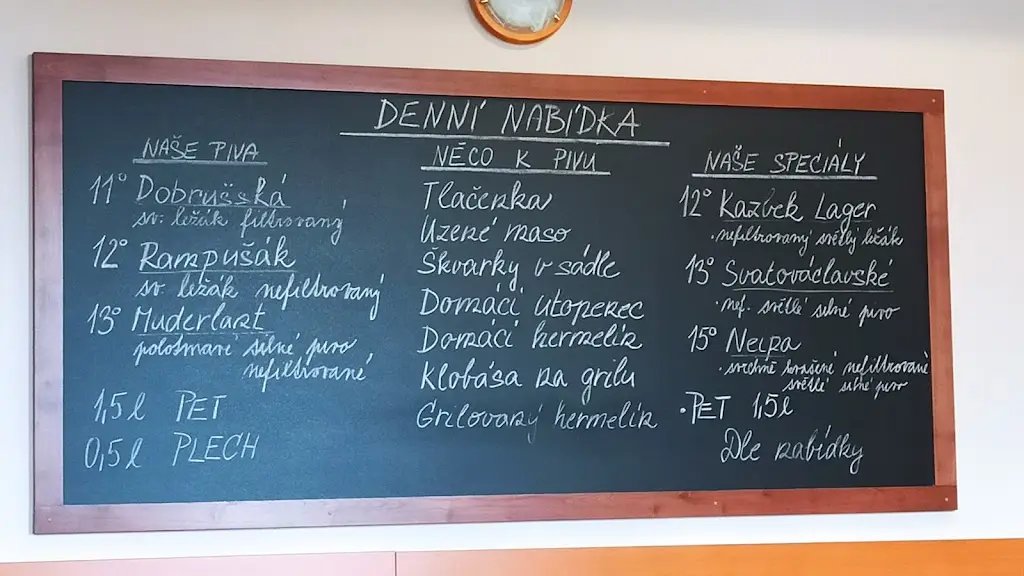 DENNÍ NABÍDKA
NAŠE PIVA
11° Dobrušská
sv. ležák filtrovaný
12° Rampušák
sv. ležák nefiltrovaný
13° Muderlant
polotmavé silné pivo
nefiltrované
1,5 l PET
0,5 l PLECH
NĚCO K PIVU
Tlačenka
Uzené maso
Škvarky v sádle
Domácí utopenec
Domácí hermelín
Klobása na grilu
Grilovaný hermelín
NAŠE SPECIÁLY
12° Kazbek Lager
• nefiltrovaný světlý ležák
13° Svatováclavské
• nef. světlé silné pivo
15° Neipa
• svrchně kvašené nefiltrované
světlé silné pivo
• PET 1,5 l
Dle nabídky